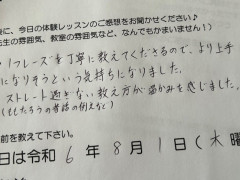 後に、今日の体験レッスンのご感想をお聞かせください♪
先生の雰囲気、教室の雰囲気など、なんでもかまいません！）
1フレーズを丁寧に教えてくださるので、より上手
になりそうという気持ちになりました。
ストレート過ぎない教え方が温かみを感じました。
前を教えて下さい。
日は令和 6 年 8 月 1 日（木 曜